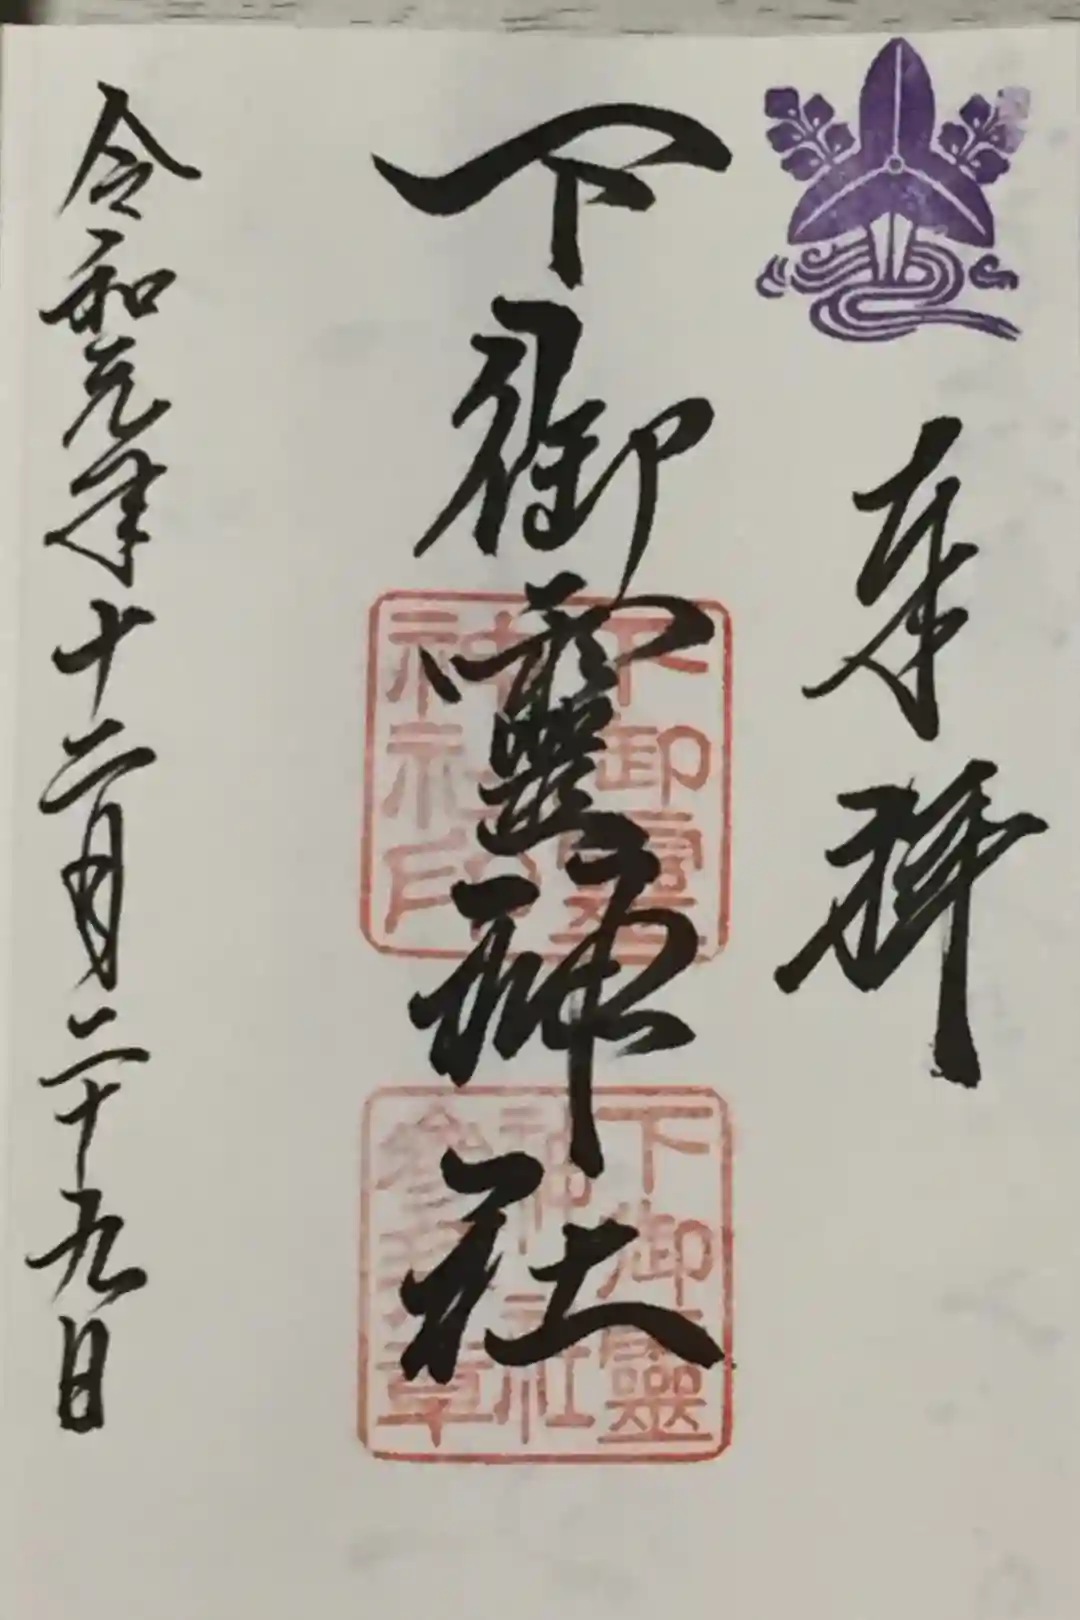 奉拝
下御霊神社
令和元年十二月二十九日
下御霊
神社印
下御靈
神社
参拝章